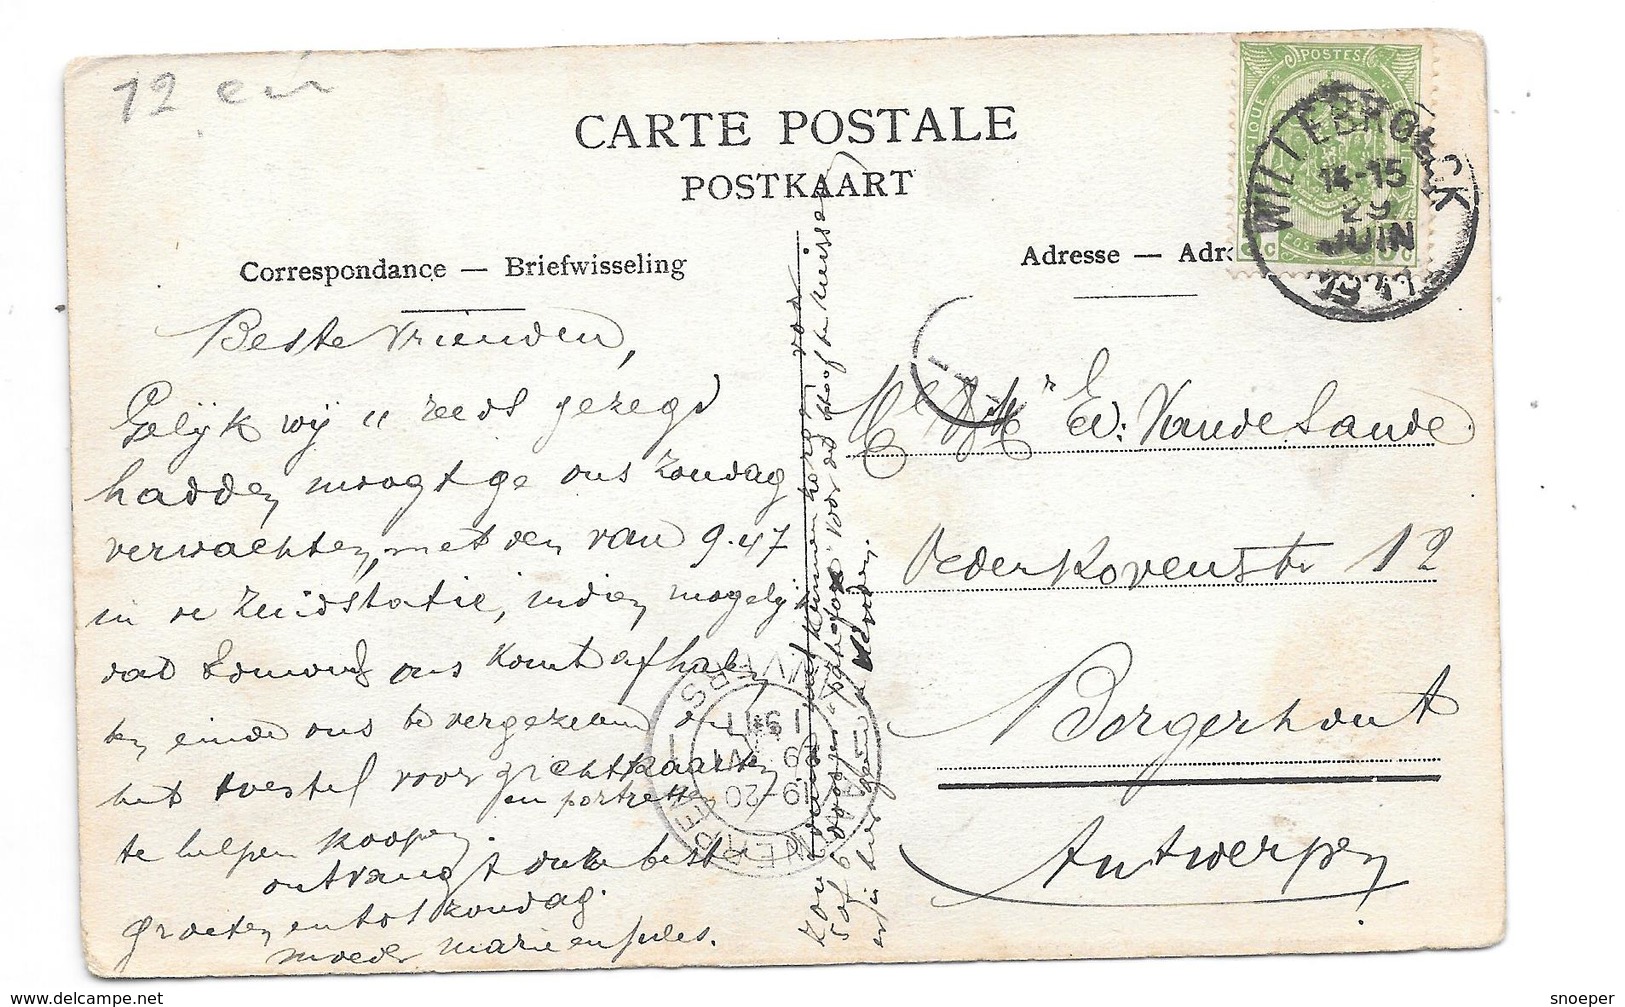 12 en
CARTE POSTALE
POSTKAART
Correspondance — Briefwisseling
Adresse — Adr
POSTES
WILLEBROECK
14-15
29
JUIN
1911
Beste Vrienden,
Gelijk wij u reeds gezegd
hadden moogt ge ons Zondag
verwachten, met den van 9.47
in de Zuidstatie, indien mogelijk
dat Edmond ons komt afhalen
ten einde ons te vergezellen om
het toestel voor zichtkaarten
en portretten
te helpen koopen.
ontvangt onze beste
groeten en tot zondag.
moeder marie en jules.
Ed: Van de Sande
Dederkovenstr 12
Borgerhout
Antwerpen
ANVERS
19-20
VI
1911
5 of 6 voor dit
er in
snoeper © delcampe.net